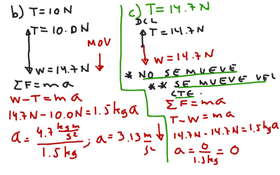 b) T = 10N
T = 10.0N
MOV
W = 14.7N
ΣF = ma
W - T = ma
14.7N - 10.0N = 1.5kg a
a = 4.7 kg m/s² / 1.5kg ; a = 3.13 m/s²
c) T = 14.7N
DCL
T = 14.7N
W = 14.7N
* NO SE MUEVE
** SE MUEVE VEL
CTE.
ΣF = ma
T - W = ma
14.7N - 14.7N = 1.5kg a
a = 0/1.5kg = 0